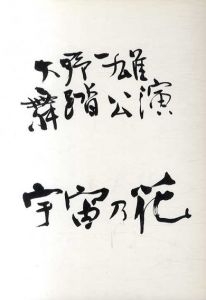 大野一雄
舞踏公演
宇宙乃花